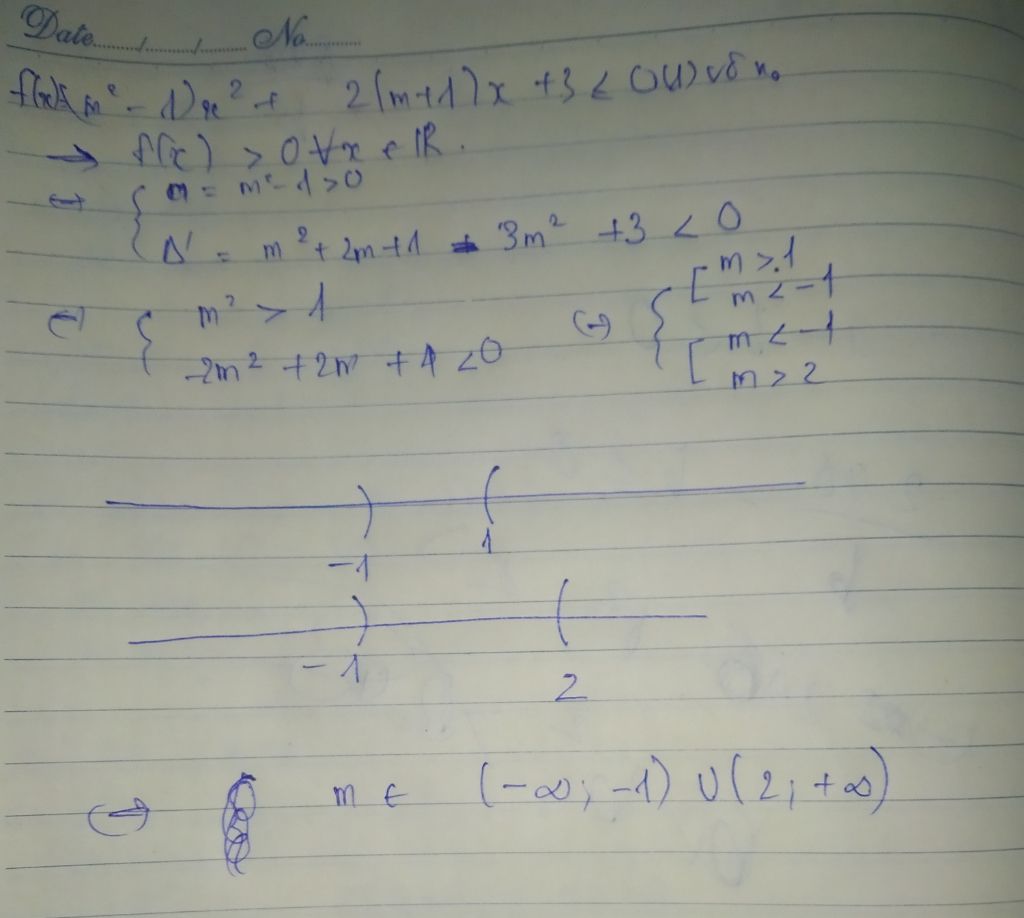 Date......../......../........ No..........
f(x)=(m² - 1)x² + 2(m+1)x + 3 < 0 (1) vô n₀
→ f(x) > 0 ∀x ∈ ℝ.
⇔ { a = m² - 1 > 0
Δ' = m² + 2m + 1 - 3m² + 3 < 0
⇔ { m² > 1
-2m² + 2m + 4 < 0
⇔ { [ m > 1
m < -1
[ m < -1
m > 2
-1 1
-1 2
⇔ m ∈ (-∞; -1) ∪ (2; +∞)